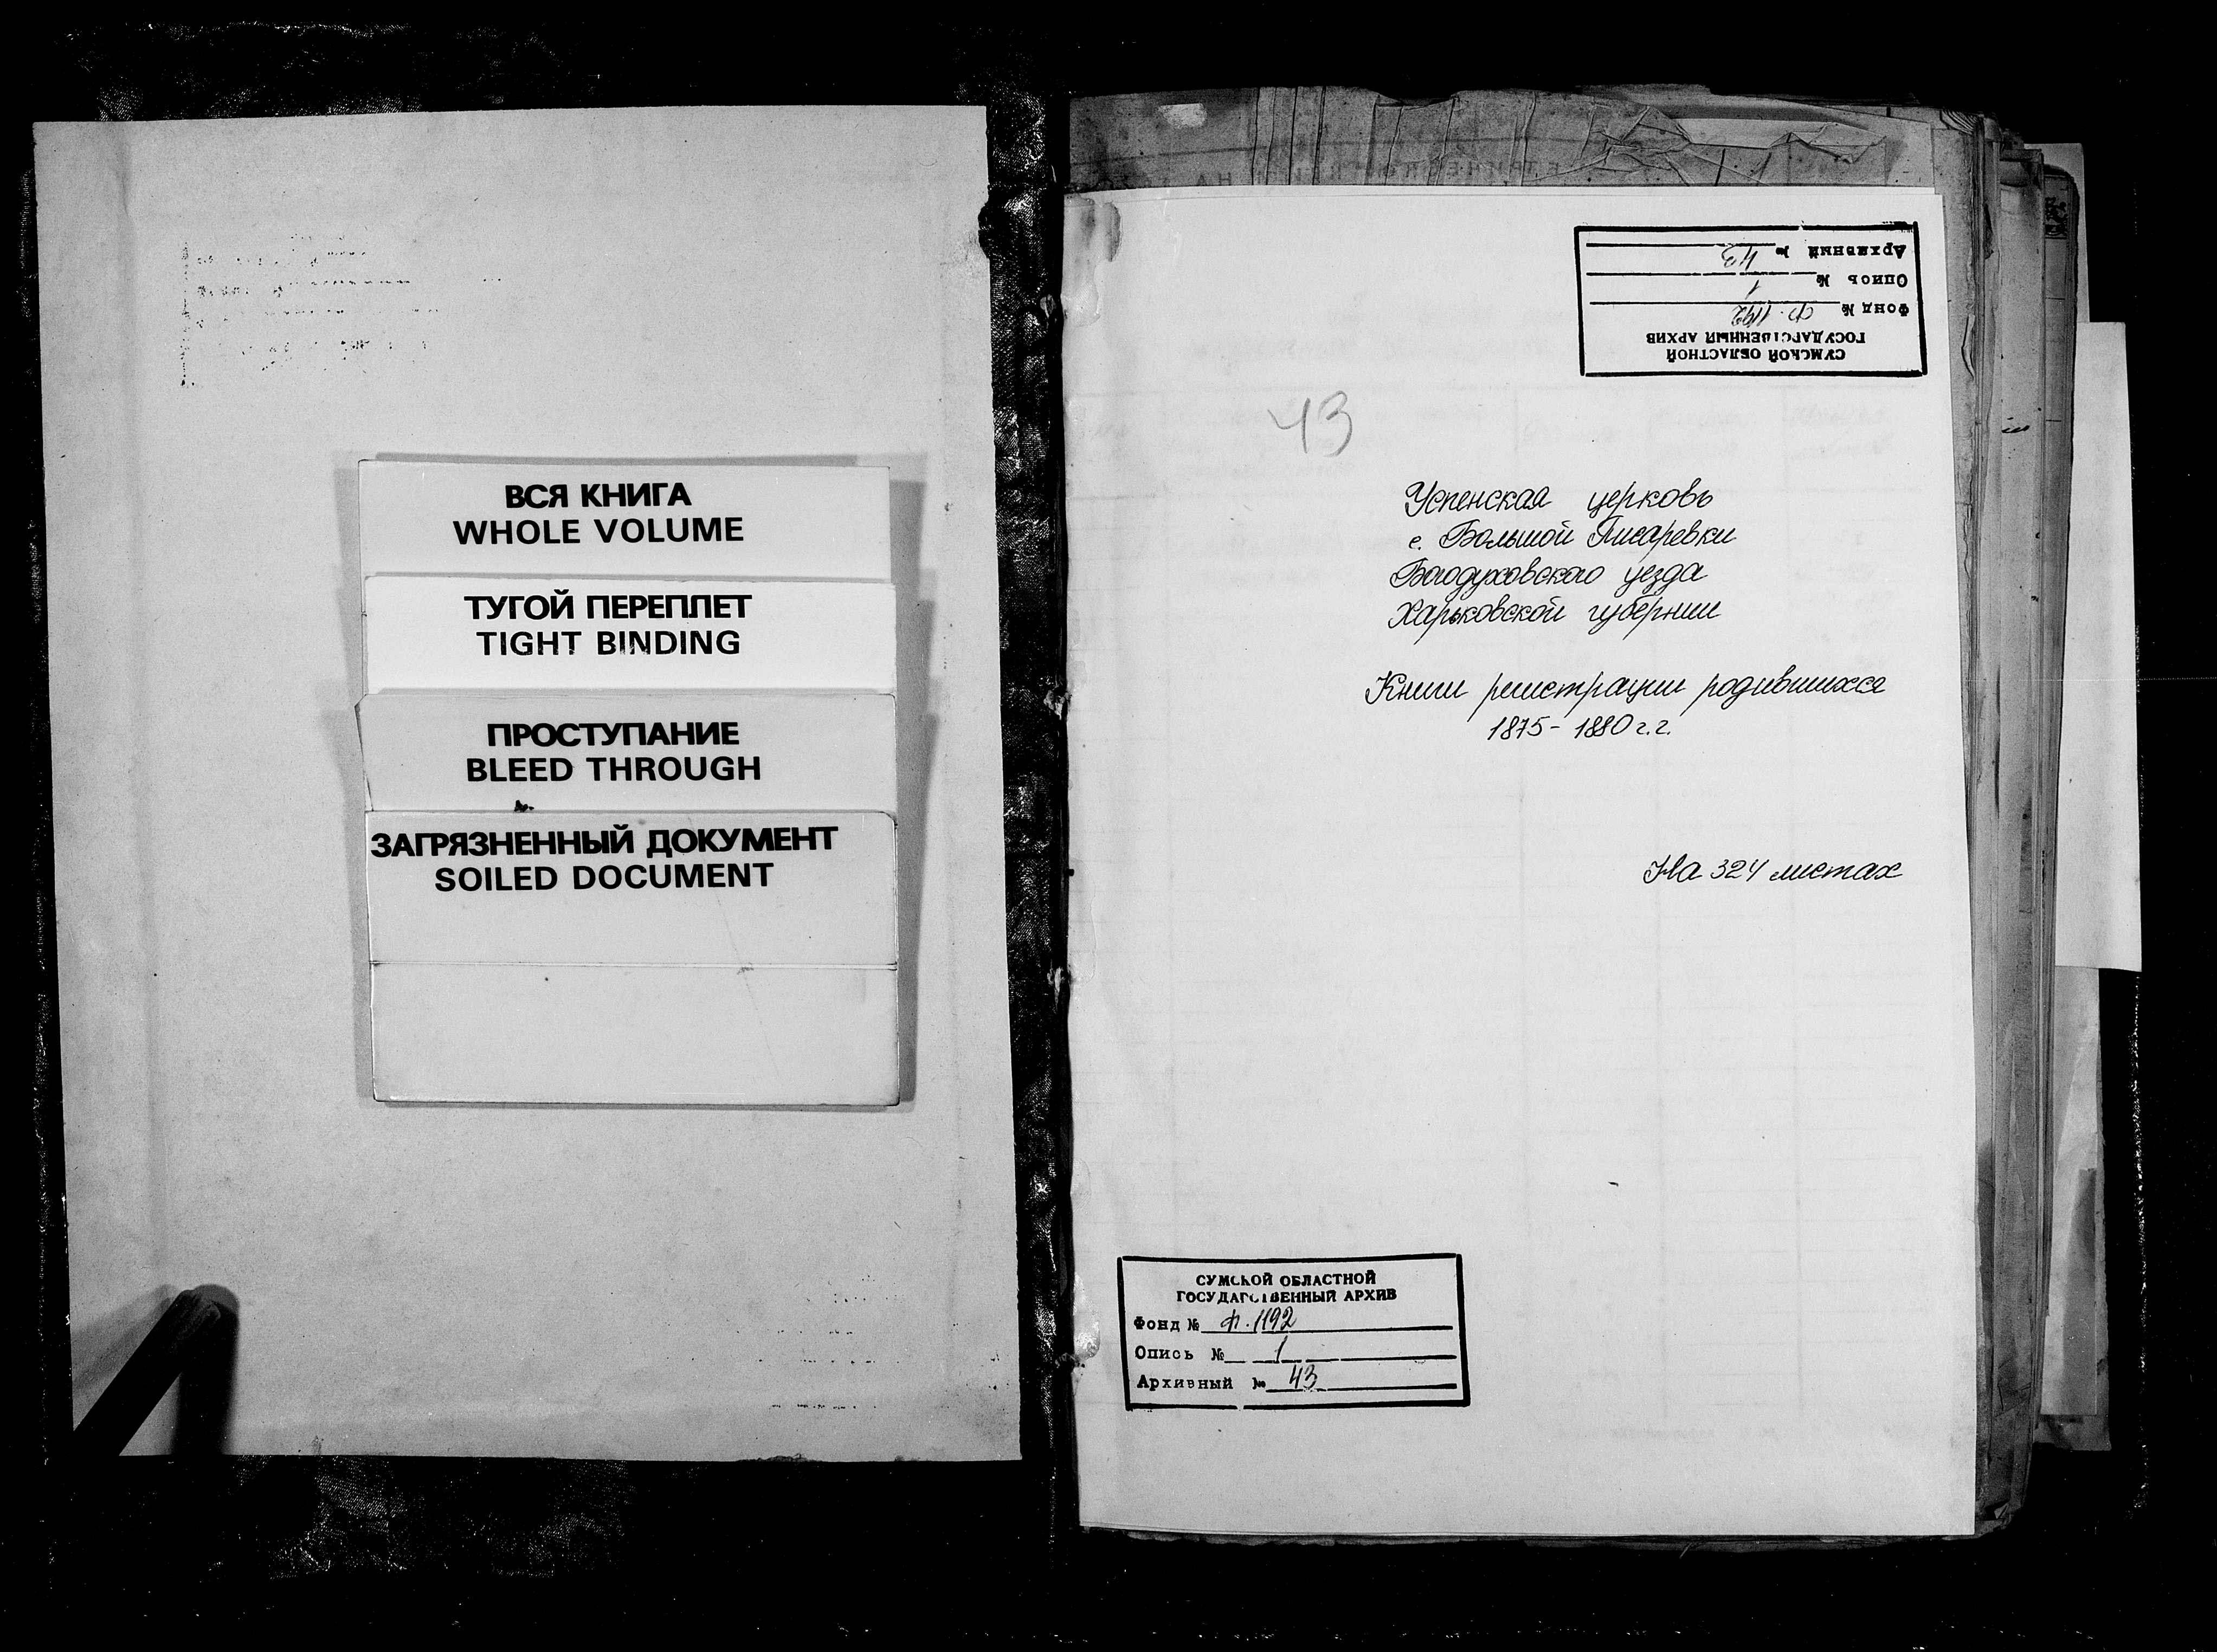 ВСЯ КНИГА
WHOLE VOLUME
ТУГОЙ ПЕРЕПЛЕТ
TIGHT BINDING
ПРОСТУПАНИЕ
BLEED THROUGH
ЗАГРЯЗНЕННЫЙ ДОКУМЕНТ
SOILED DOCUMENT
СУМСКОЙ ОБЛАСТНОЙ
ГОСУДАРСТВЕННЫЙ АРХИВ
Фонд № Ф. 1192
Опись № 1
Архивный № 43
43
Успенская церковь
с. Большой Писаревки
Богодуховского уезда
Харьковской губернии
Книги регистрации родившихся
1875 - 1880 г.г.
На 324 листах
СУМСКОЙ ОБЛАСТНОЙ
ГОСУДАРСТВЕННЫЙ АРХИВ
Фонд № Ф. 1192
Опись № 1
Архивный № 43